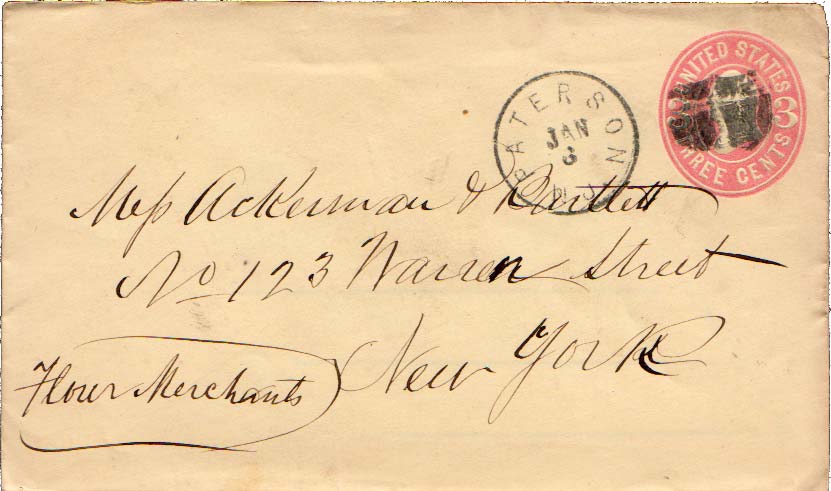 UNITED STATES
3
THREE CENTS
PATERSON
JAN
3
N.J.
Mess Ackerman & Bartlett
No 123 Warren Street
New York
Flour Merchants